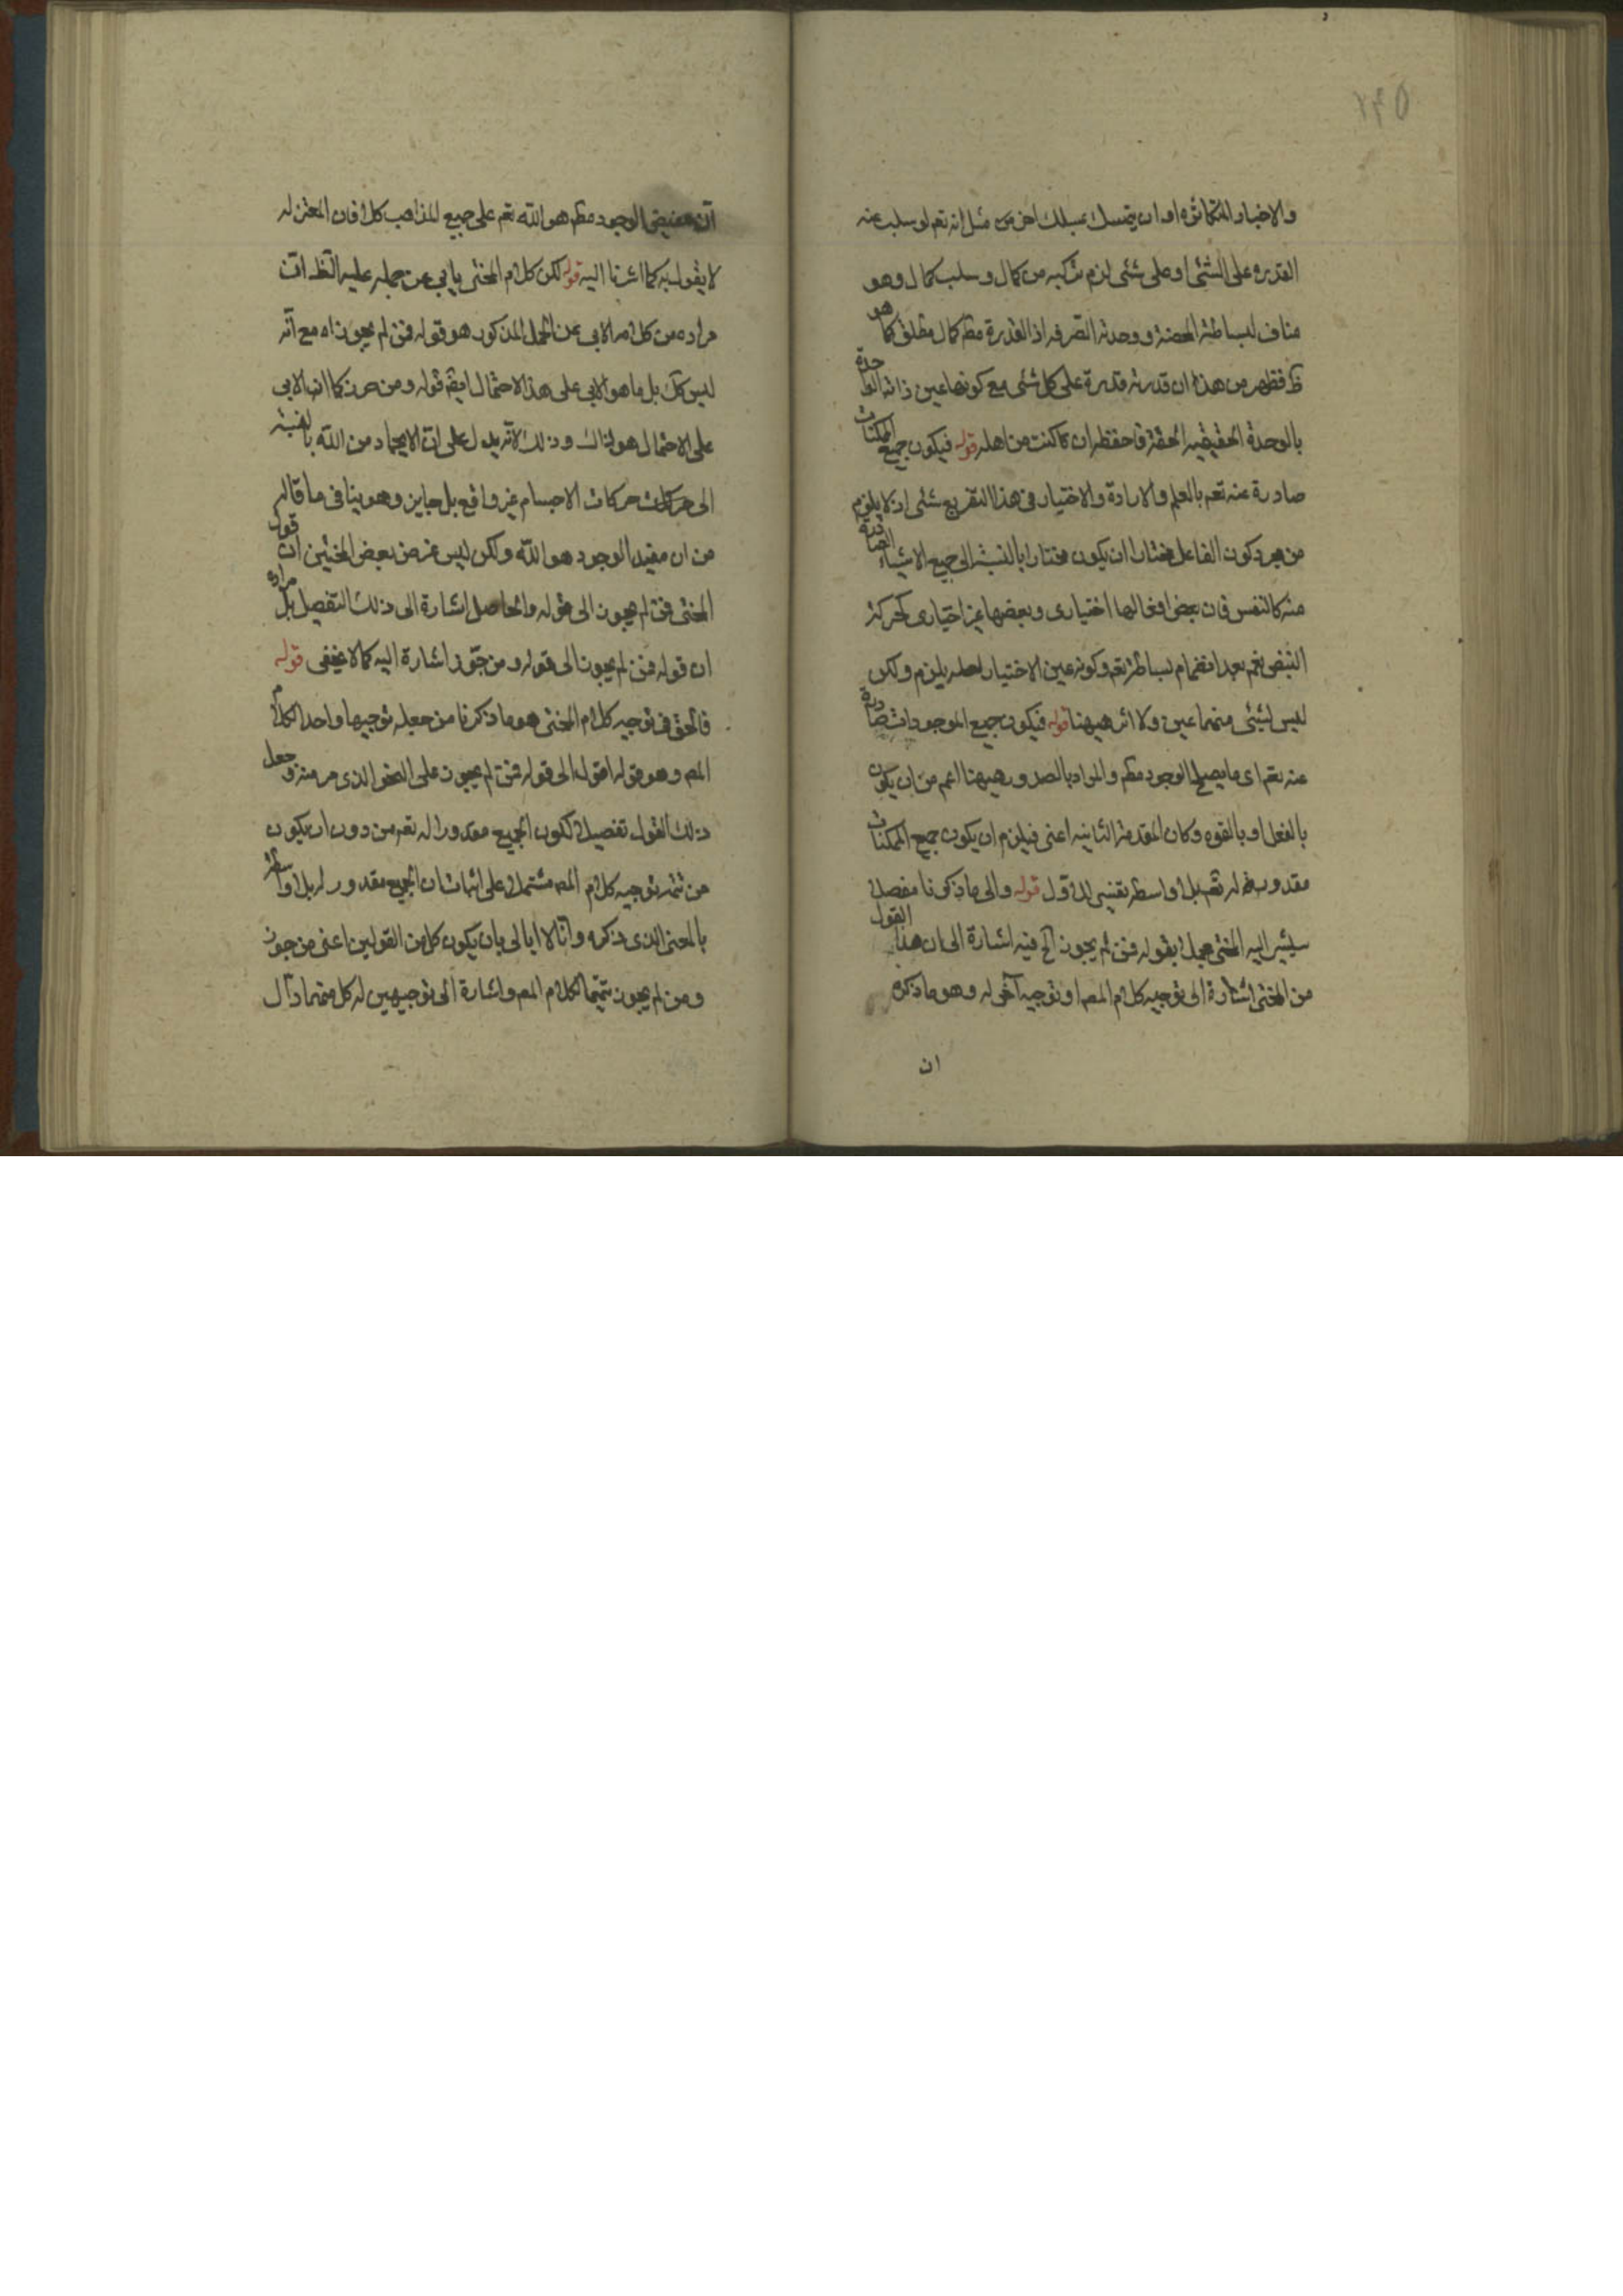 والاخبار المتكاثره او ان يتمسك بمسلك اخر من مثل انه تعم لو سلب عنه
القدره على الشئ او على شئ لزم تركبه من كمال وسلب كمال وهو
مناف لبساطته المحضة ووحدته الصرفه اذ القدرة مطم كمال مطلق كما هو
ظ فظهر من هذا ان قدرته قدرة على كل شئ مع كونها عين ذاته الواحدة
بالوحدة الحقيقيه الحقة فاحفظه ان كنت من اهله قوله فيكون جميع الممكنات
صادرة عنه تعم بالعلم والارادة والاختيار فى هذا التفريع شئ اذ لا يلزم
من مجرد كون الفاعل مختارا ان يكون مختارا بالنسبة الى جميع الاشياء الصادرة
منه كالنفس فان بعض افعالها اختيارى وبعضها غير اختيارى كحركة
النبض نعم بعد انضمام بساطته تعم وكونه عين الاختيار لعله يلزم ولكن
ليس لشئ منهما عين ولا اثر هيهنا قوله فيكون جميع الموجودات صادرة
عنه تعم اى ما يصح الوجود مطم والمراد بالصدور هيهنا اعم من ان يكون
بالفعل او بالقوه وكان المقدمة الثانيه اعنى فيلزم ان يكون جميع الممكنات
مقدورة له تعم بلا واسطه تفسير للاول قوله والى ما ذكرنا مفصلا
سيشير اليه المحشى مجملا بقوله فمن لم يجوز الخ فيه اشارة الى ان هذا القول
من المحشى اشارة الى توجيه كلام المصم او توجيه آخر له وهو ما ذكره
ان
ان مفيض الوجود مطم هو الله تعم على جميع المذاهب كلا فان المعتزله
لا يقول به كما اشرنا اليه قوله لكن كلام المحشى يابى عن حمله عليه الظ ان
مراده من كلامه الابى عن الحمل المذكور هو قوله فمن لم يجوز اه مع انه
ليس كك بل ما هو الابى على هذا الاحتمال ايضم قوله ومن جوز كما ان الابى
على الاحتمال هو لذلك وذلك لانه يدل على ان الايجاد من الله بالنسبة
الى حركات الاجسام غير واقع بل جايز وهو ينافى ما قاله
من ان مفيد الوجود هو الله ولكن ليس غرض بعض المحشين ان قول
المحشى فمن لم يجوز الى قوله والحاصل اشارة الى ذلك التفصيل بل مراده
ان قوله فمن لم يجوز الى قوله ومن جوز اشارة اليه كما لا يخفى قوله
فالحق فى توجيه كلام المحشى هو ما ذكرنا من جعله توجيها واحدا لكلام
المصم وهو قوله اقول الى قوله فمن لم يجوز على النحو الذى مر منه وجعل
ذلك القول تفصيلا لكون الجميع مقدورا له تعم من دون ان يكون
من تتمه توجيه كلام المصم مشتملا على اثبات ان الجميع مقدور له بلا واسطة
بالمعنى الذى ذكره وانا لا ابالى بان يكون كل من القولين اعنى من جوز
ومن لم يجوز تتميما لكلام المصم واشارة الى توجيهين له كل منهما دال